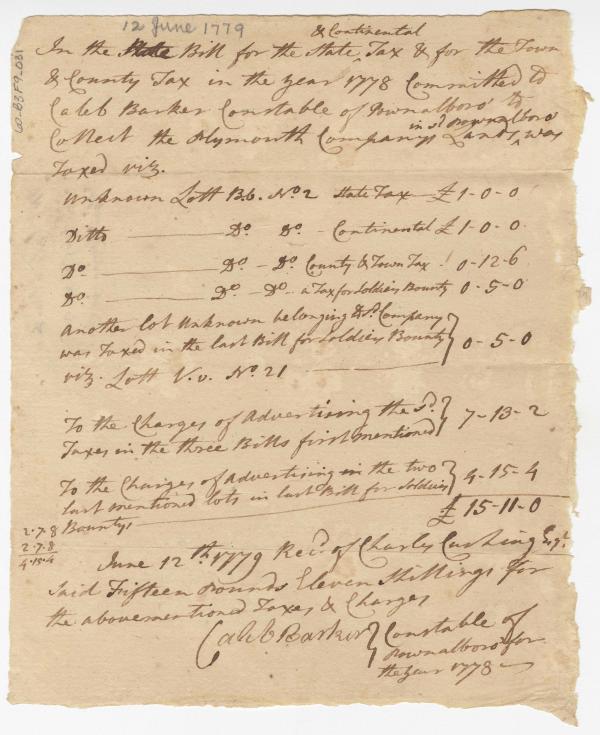 12 June 1779
& Continental
In the State Bill for the State Tax & for the Town
& County Tax in the year 1778 Committed to
Caleb Barker Constable of Pownalboro' to
in sd. Pownalboro
Collect the Plymouth Companys Lands ^ was
Taxed viz.
Unknown Lott B.b. No. 2 State Tax £ 1-0-0
Ditto Do Do - Continental £ 1-0-0
Do Do - Do County & Town Tax 0-12-6
Do Do - Do - a Tax for Soldiers Bounty 0-5-0
Another lot Unknown belonging to sd. Company
was Taxed in the last Bill for Soldiers Bounty } 0-5-0
viz. Lott V.v. No 21
To the Charges of Advertising the sd. } 7-13-2
Taxes in the three Bills first mentioned
To the Charges of Advertising in the two } 4-15-4
last mentioned lots in last Bill for Soldiers
Bounty £ 15-11-0
2.7.8
2.7.8
4.15.4
June 12th 1779 Recd. of Charles Cushing Esqr.
Said Fifteen Pounds Eleven Shillings for
the abovementioned Taxes & Charges
Caleb Barker } Constable of
Pownalboro for
the year 1778